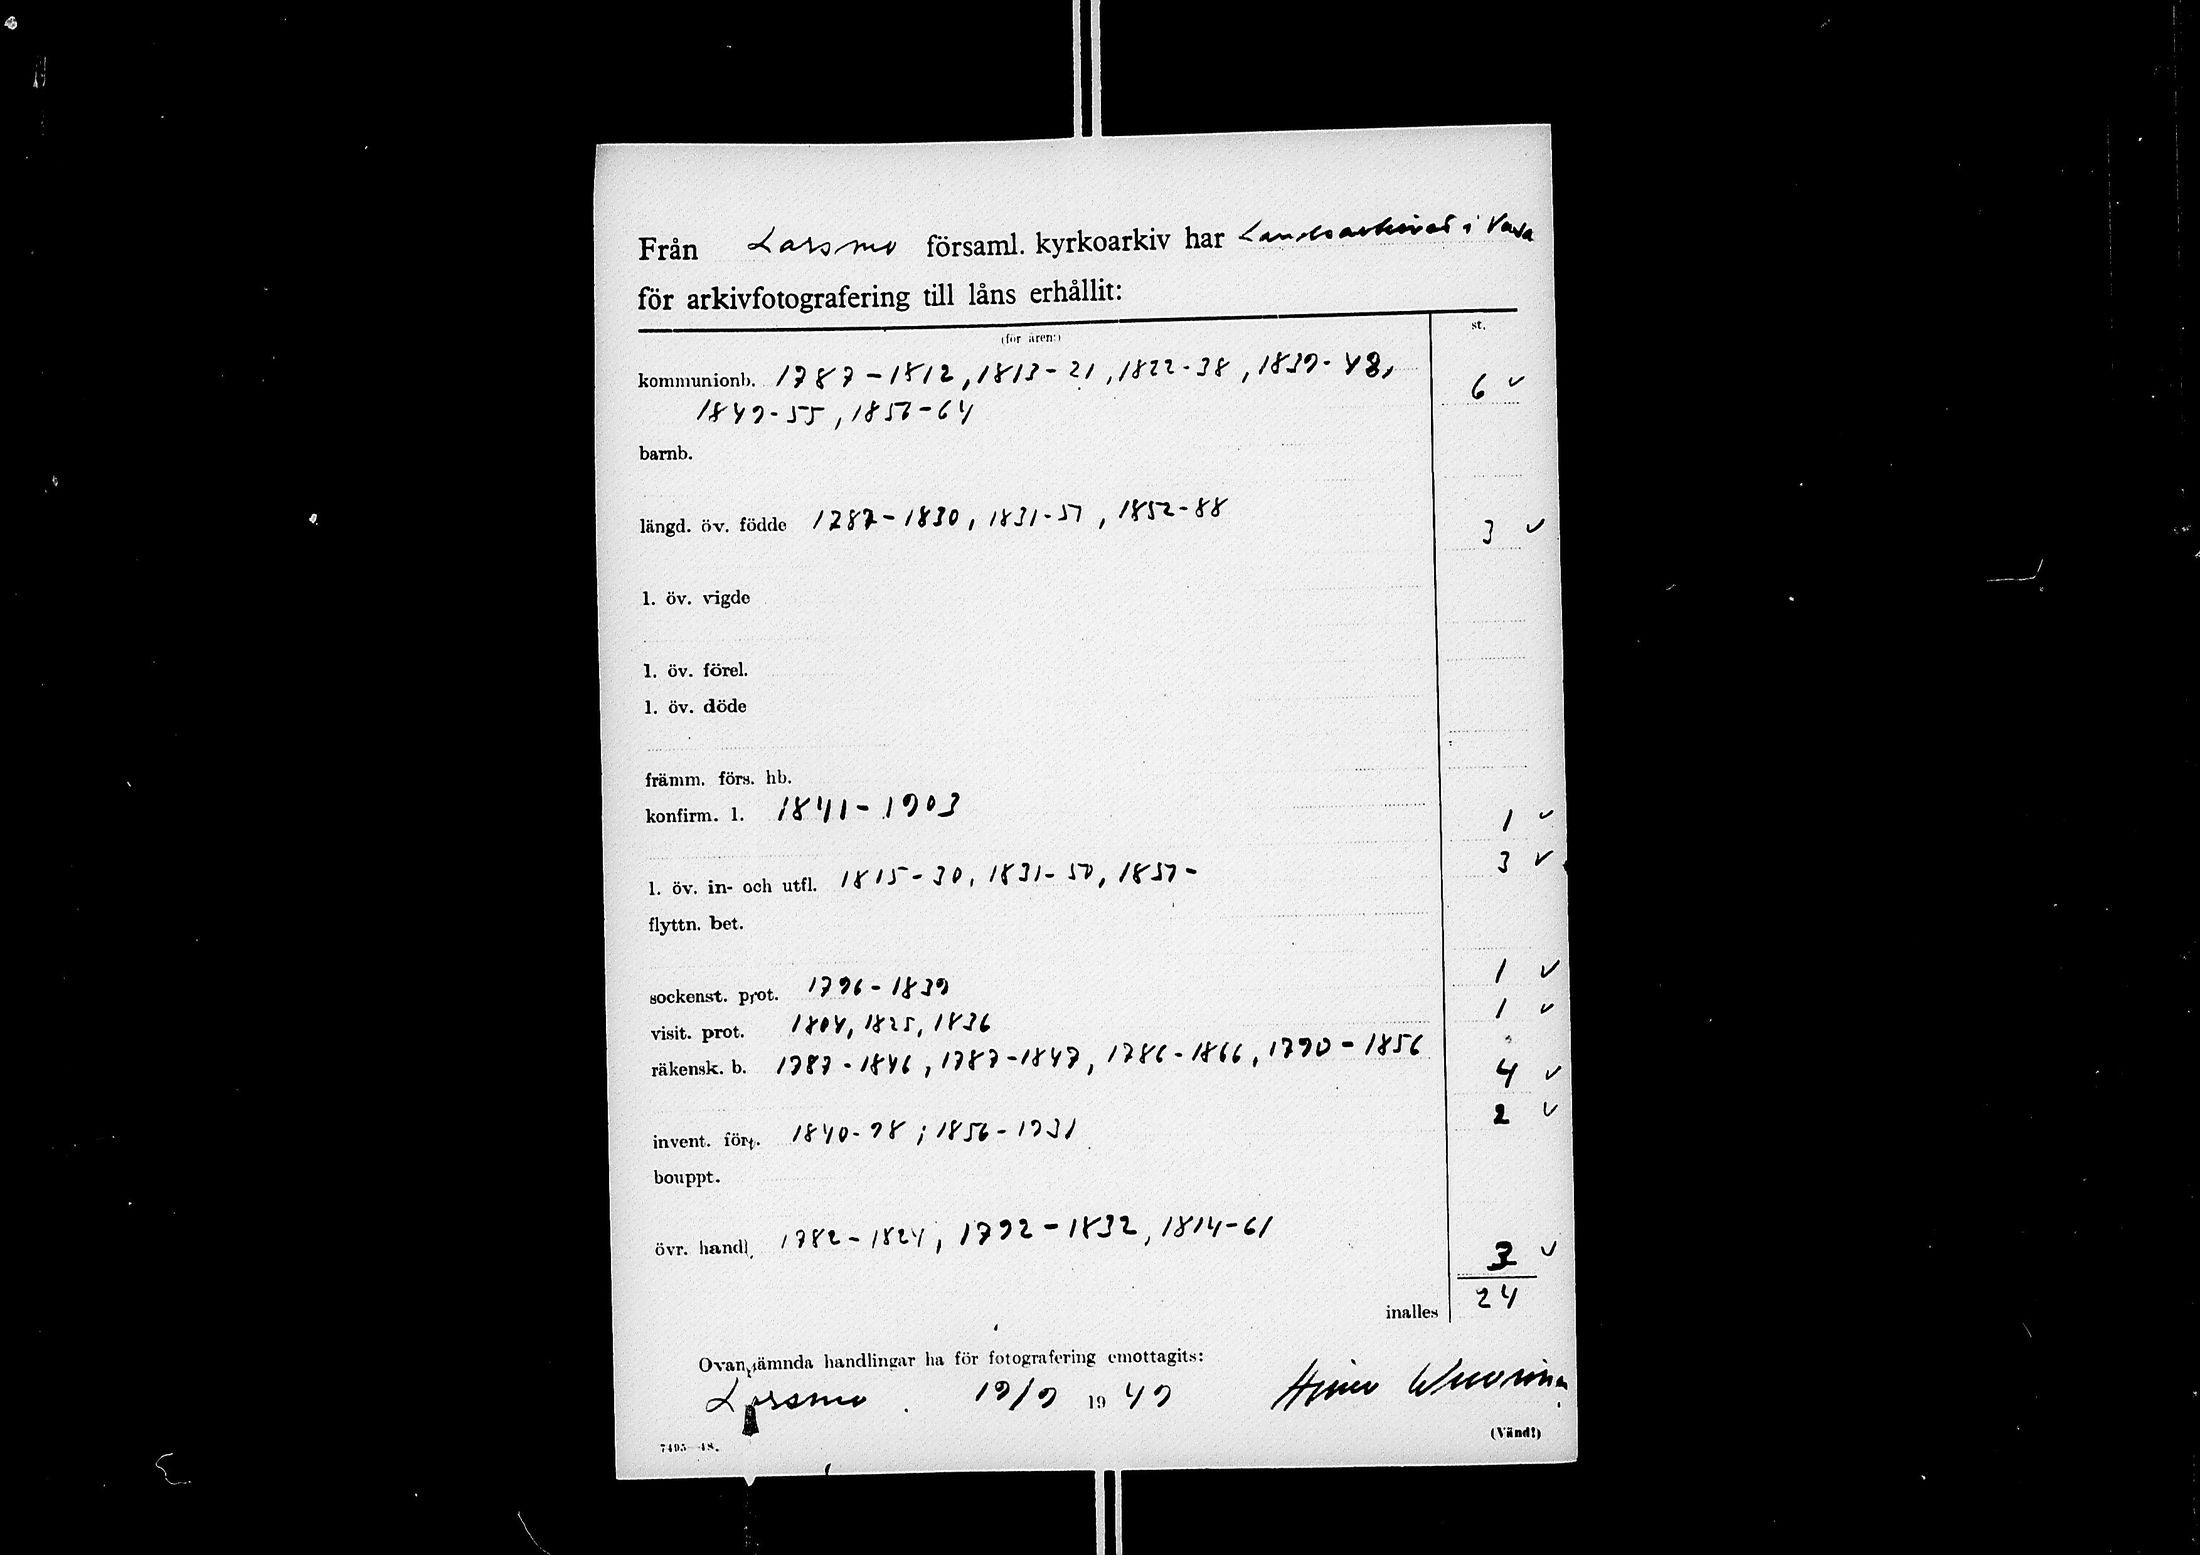 Från Larsmo församl. kyrkoarkiv har Landsarkivet i Vasa
för arkivfotografering till låns erhållit:
(för åren:) st.
kommunionb. 1787-1812, 1813-21, 1822-38, 1839-48, 6 ✓
1849-55, 1856-64
barnb.
längd. öv. födde 1787-1830, 1831-51, 1852-88 3 ✓
l. öv. vigde
l. öv. förel.
l. öv. döde
främm. förs. hb.
konfirm. l. 1841-1903 1 ✓
l. öv. in- och utfl. 1815-30, 1831-50, 1851- 3 ✓
flyttn. bet.
sockenst. prot. 1796-1839 1 ✓
visit. prot. 1804, 1825, 1836 1 ✓
räkensk. b. 1787-1846, 1787-1847, 1786-1866, 1790-1856 4 ✓
invent. fört. 1840-98; 1856-1931 2 ✓
bouppt.
övr. handl. 1782-1824, 1792-1832, 1814-61 3 ✓
inalles 24
Ovannämnda handlingar ha för fotografering emottagits:
Larsmo 19/9 1949
(Vänd!)
7495—48.